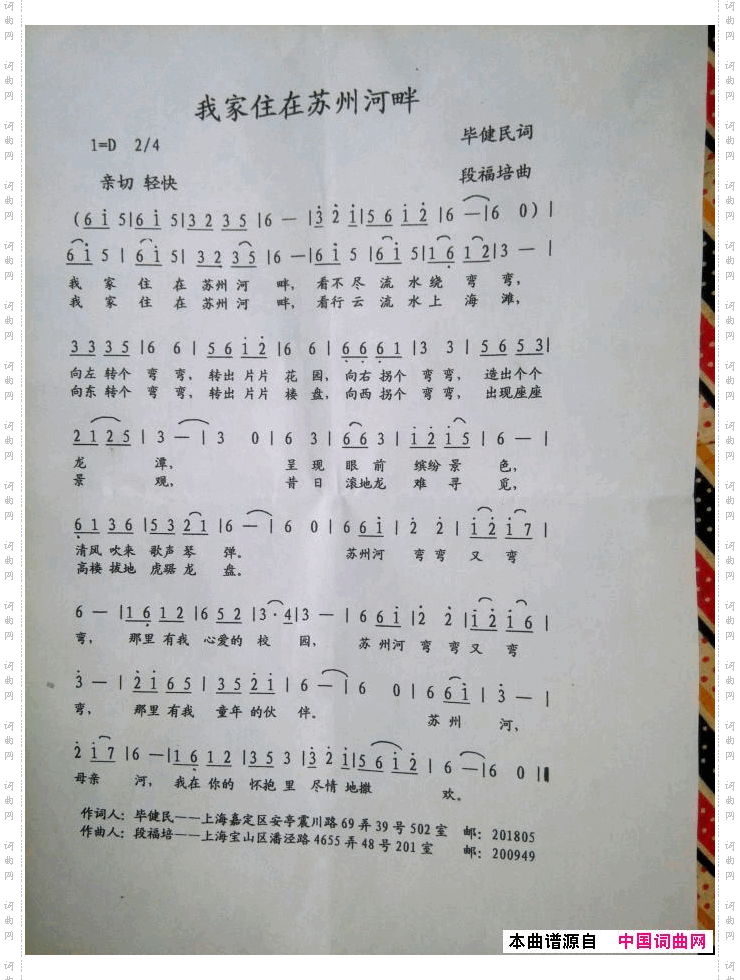 我家住在苏州河畔
1=D 2/4
毕健民词
亲切 轻快
段福培曲
(6 i 5|6 i 5|3 2 3 5|6 — |3 2 i|5 6 i 2|6 —|6 0)|
6 i 5 |6 i 5| 3 2 3 5|6 —|6 i 5 |6 i 5|1 6 1 2|3 — |
我 家 住 在 苏州 河 畔, 看不 尽 流 水 绕 弯 弯,
我 家 住 在 苏州 河 畔, 看行 云 流 水 上 海 滩,
3 3 3 5 |6 6 | 5 6 i 2 |6 6 | 6 6 6 1| 3 3 |5 6 5 3|
向左 转个 弯 弯, 转出 片片 花 园, 向右 拐个 弯 弯, 造出个个
向东 转个 弯 弯, 转出 片片 楼 盘, 向西 拐个 弯 弯, 出现座座
2 1 2 5 | 3 — | 3 0 | 6 3 | 6 6 3 | i 2 i 5 | 6 — |
龙 潭, 呈 现 眼 前 缤纷 景 色,
景 观, 昔 日 滚地龙 难 寻 觅,
6 1 3 6 |5 3 2 1 |6 — | 6 0 | 6 6 i | 2 2 | i 2 i 7 |
清风 吹来 歌声 琴 弹。 苏州河 弯 弯 又 弯
高楼 拔地 虎踞 龙 盘。
6 — |1 6 1 2 |6 5 2 |3 · 4|3 — | 6 6 i |2 2 |i 2 i 6 |
弯, 那里 有我 心爱的 校 园, 苏 州河 弯 弯 又 弯
3 — | 2 i 6 5 | 3 5 2 i |6 — | 6 0 | 6 6 i | 3 — |
弯, 那里 有我 童年 的伙 伴。 苏 州 河,
2 i 7 |6 —|1 6 1 2 |3 5 3 |3 2 i|5 6 i 2 | 6 —|6 0 ‖
母亲 河, 我在 你的 怀抱 里 尽情 地撒 欢。
作词人: 毕健民——上海嘉定区安亭震川路 69 弄 39 号 502 室 邮: 201805
作曲人: 段福培——上海宝山区潘泾路 4655 弄 48 号 201 室 邮: 200949
本曲谱源自 中国词曲网